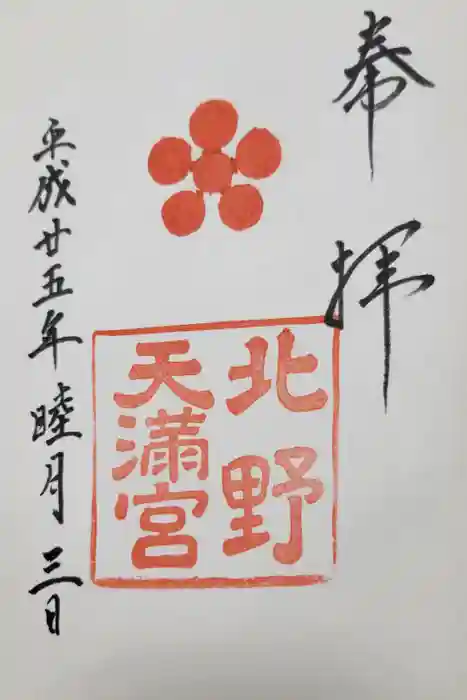 奉拝
北野
天満宮
平成廿五年睦月三日